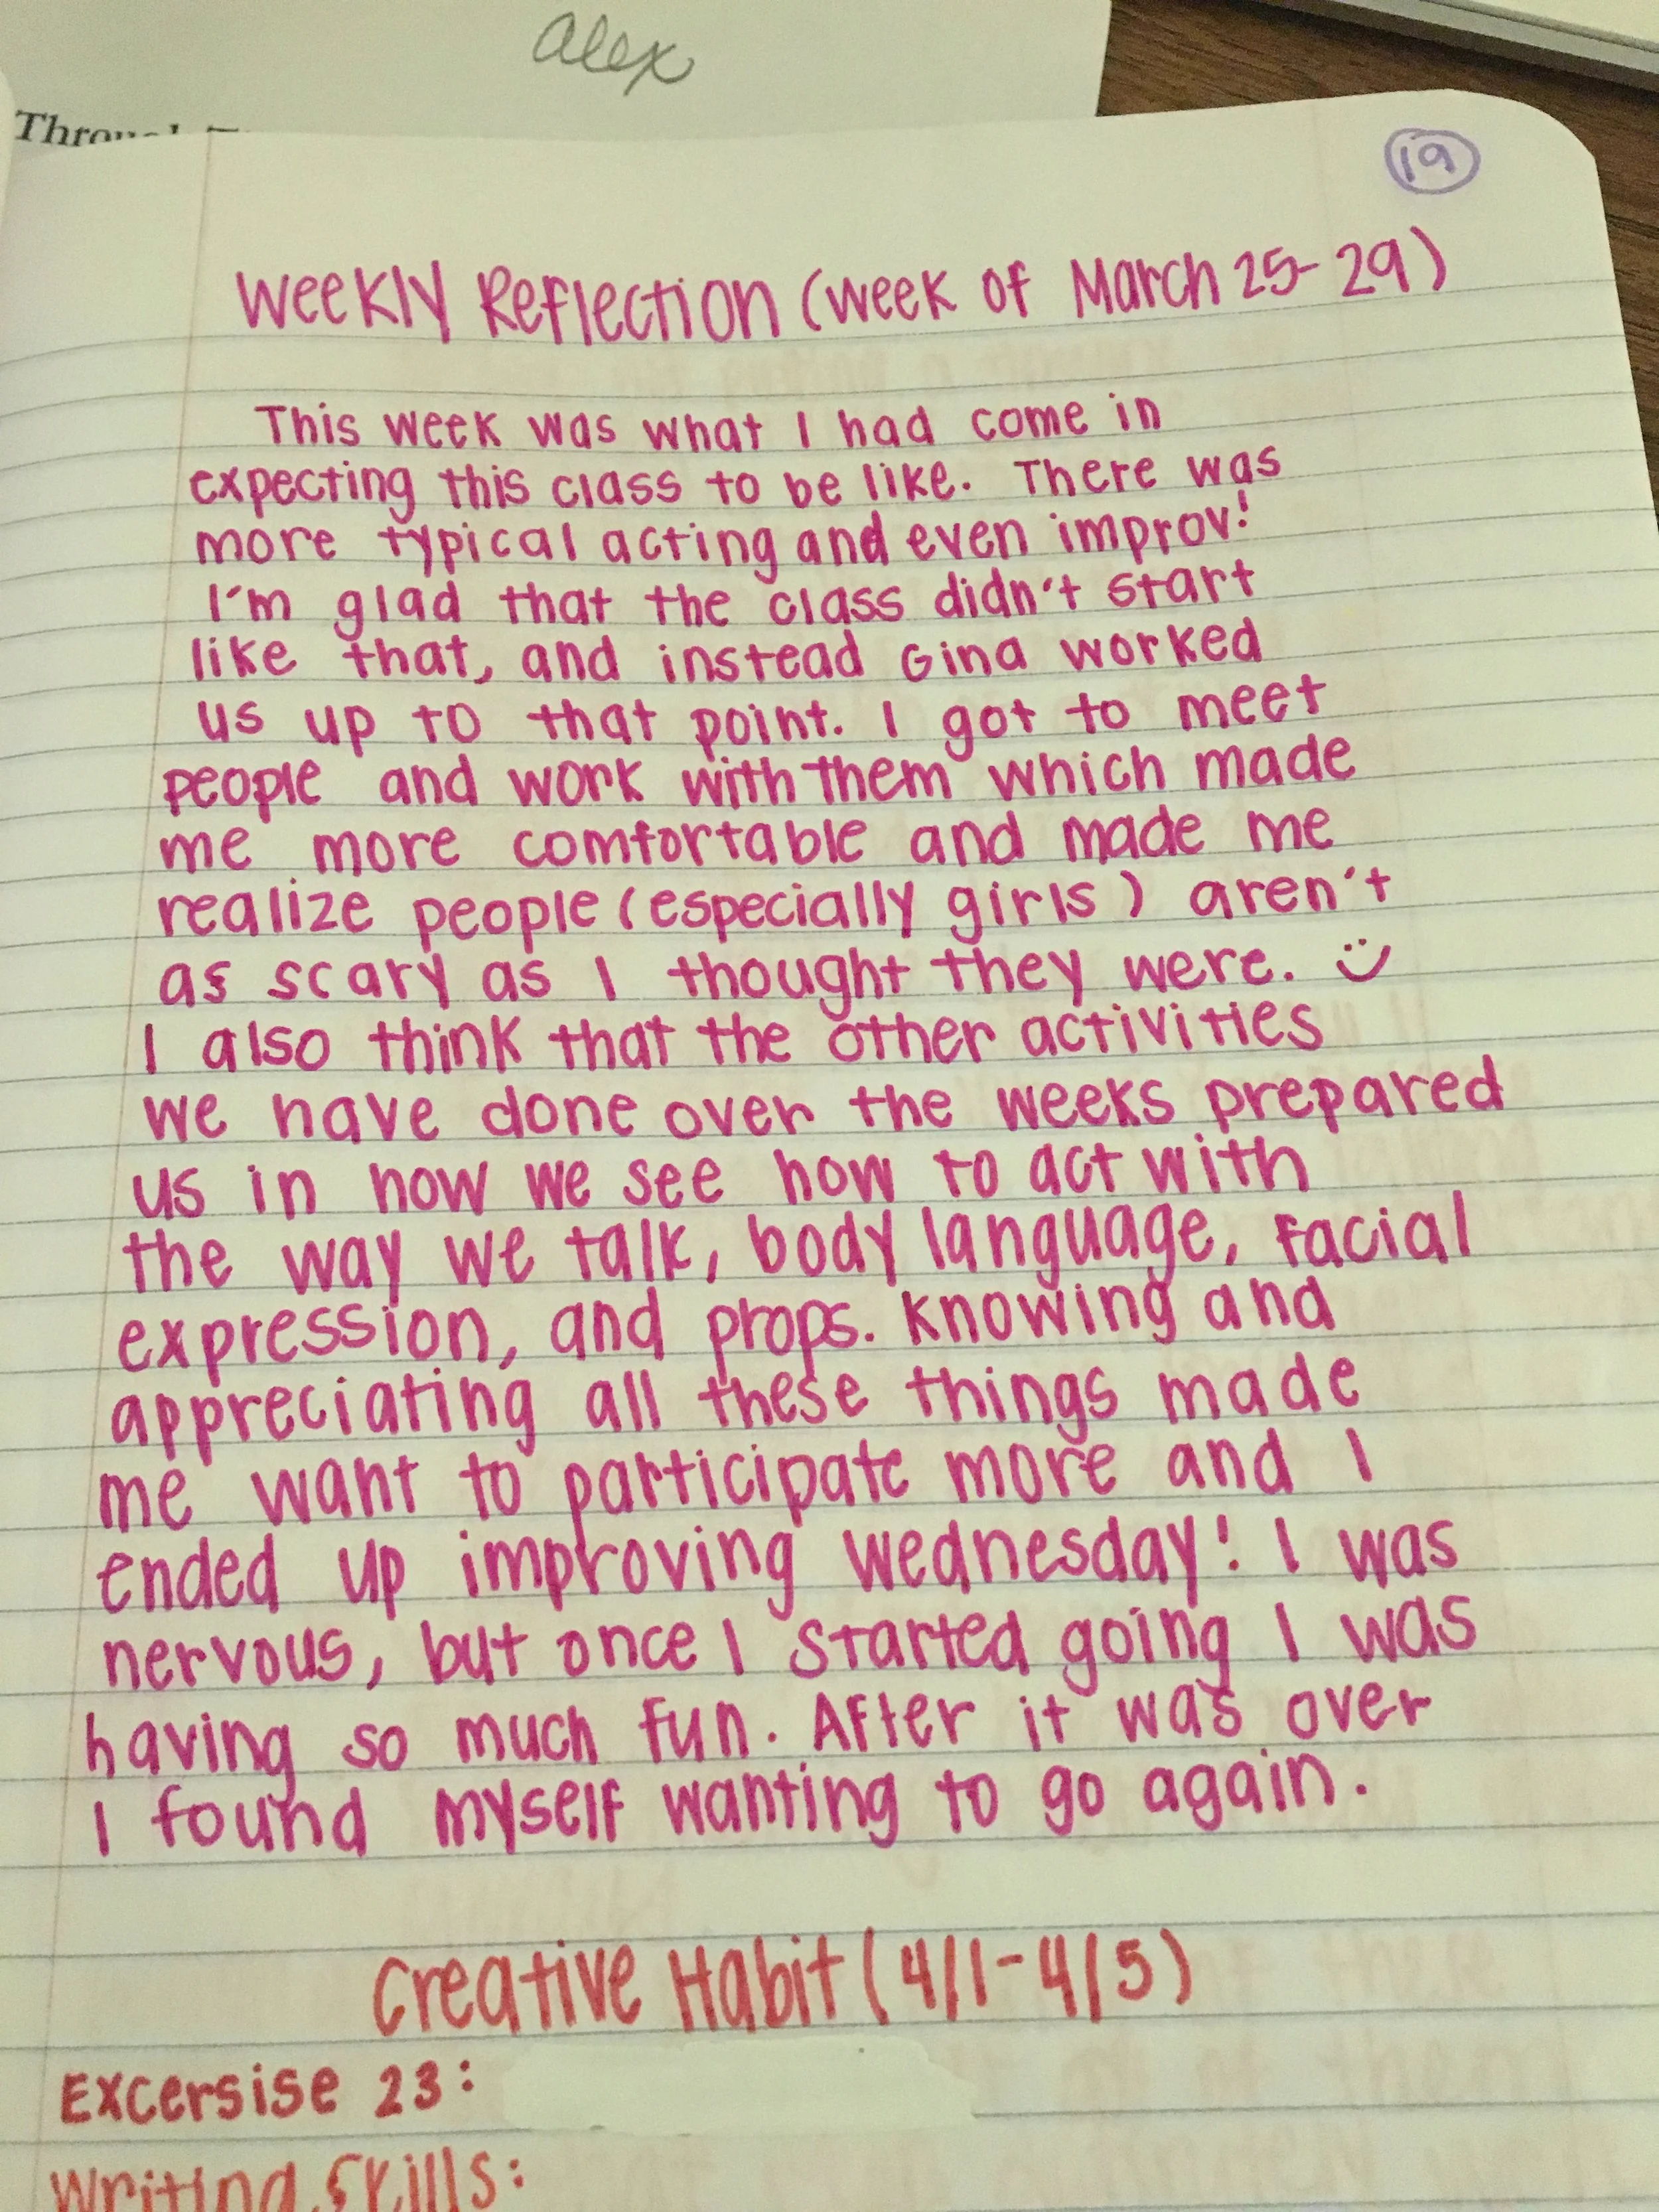 alex
19
Weekly Reflection (week of March 25-29)
This week was what I had come in
expecting this class to be like. There was
more typical acting and even improv!
I'm glad that the class didn't start
like that, and instead Gina worked
us up to that point. I got to meet
people and work with them which made
me more comfortable and made me
realize people (especially girls) aren't
as scary as I thought they were. :)
I also think that the other activities
we have done over the weeks prepared
us in how we see how to act with
the way we talk, body language, facial
expression, and props. Knowing and
appreciating all these things made
me want to participate more and I
ended up improving Wednesday! I was
nervous, but once I started going I was
having so much fun. After it was over
I found myself wanting to go again.
Creative Habit (4/1-4/5)
Excersise 23:
Writing Skills: